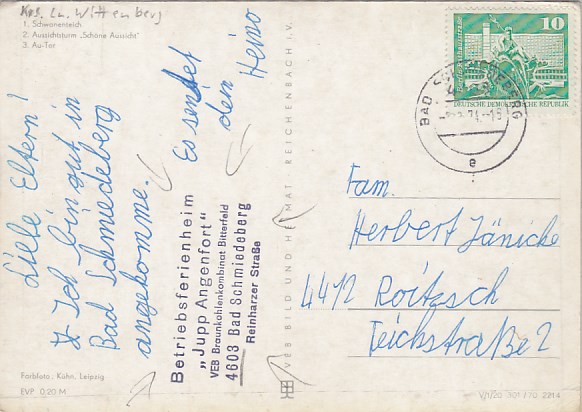 Krs. Lu. Wittenberg
1. Schwanenteich
2. Aussichtsturm „Schöne Aussicht"
3. Au-Tor
Liebe Eltern!
Ich bin gut in
Bad Schmiedeberg
angekomme.
Es sendet
dein Heino
Betriebsferienheim
„Jupp Angenfort"
VEB Braunkohlenkombinat Bitterfeld
4603 Bad Schmiedeberg
Reinharzer Straße
VEB BILD UND HEIMAT REICHENBACH i. V.
10
DEUTSCHE DEMOKRATISCHE REPUBLIK
BAD SCHMIEDEBERG
e
Fam.
Herbert Jänicke
4412 Roitzsch
Teichstraße 2
Farbfoto: Kühn, Leipzig
EVP 0,20 M
V/I/20 101/70 2214